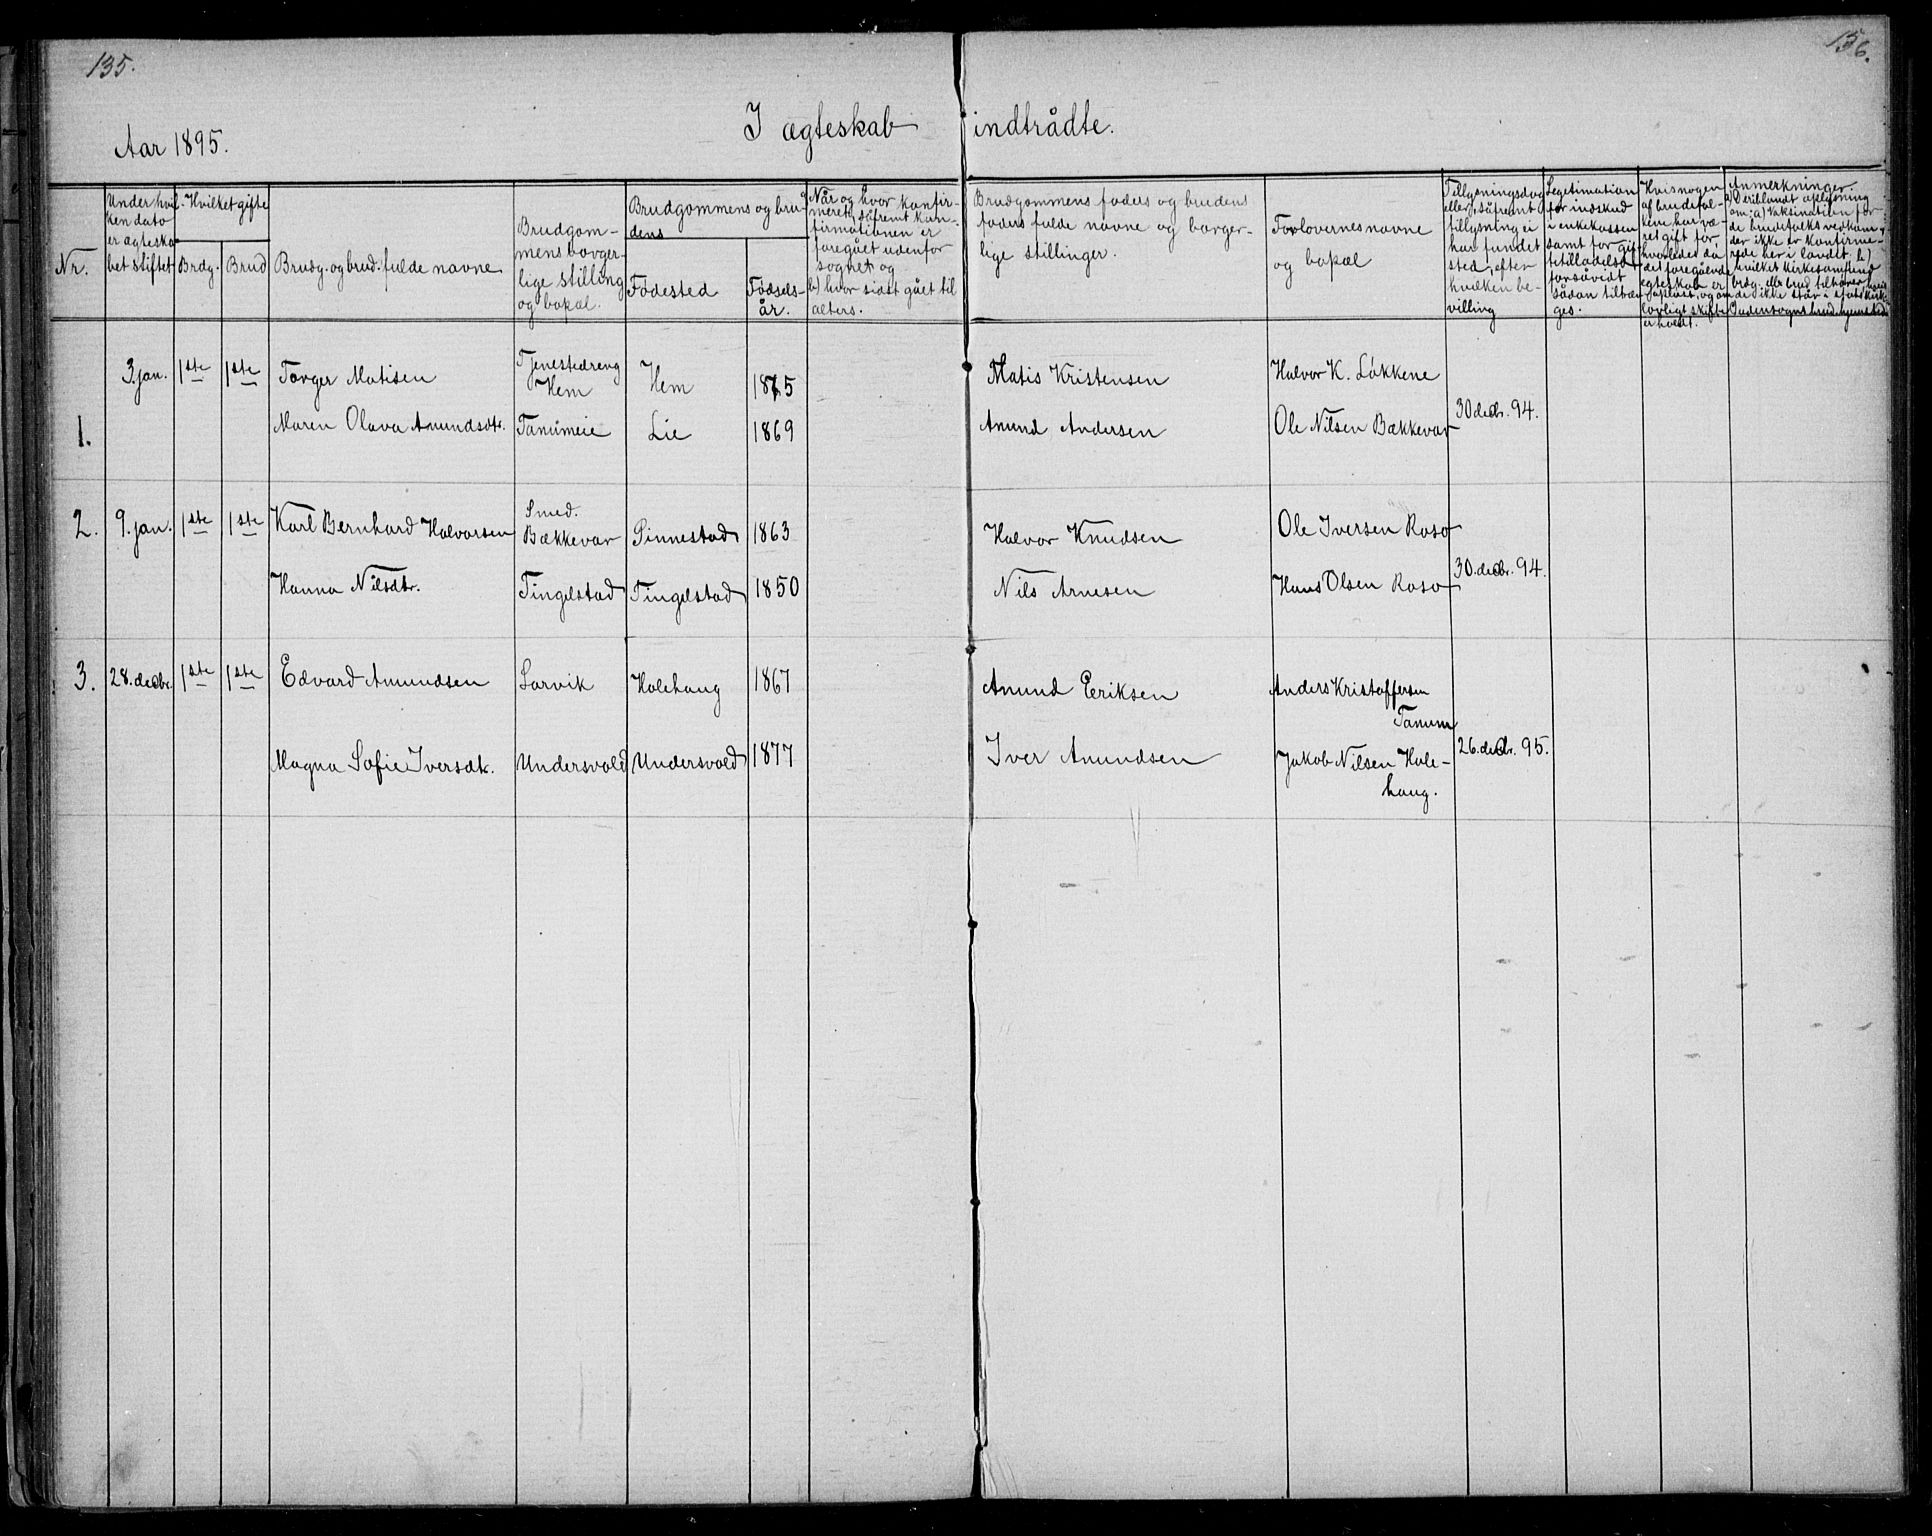 135.
136.
I ægteskab indtrådte.
Aar 1895.
Nr.
Under hvil-
ken dato
er ægteska-
bet stiftet
Hvilket gifte
Brdg.
Brud
Brudg. og brud. fulde navne
Brudgom-
mens borger-
lige stilling
og bopæl.
Brudgommens og bru-
dens
Födested
Födsels-
år.
Når og hvor konfir-
meret, såfremt kon-
firmationen er
foregået udenfor
sognet og
b) hvor sidst gået til
alters.
Brudgommens faders og brudens
faders fulde navne og borger-
lige stillinger.
Forlovernes navne
og bopæl
Tillysningsdag
eller, såfremt
tillysning ei
har fundet
sted, efter
hvilken be-
villing
Legitimation
for indskud
i enkekassen
samt for gif-
tetilladelsen
forsåvidt
sådan tiltræn-
ges.
Hvis nogen
af brudefol-
kene har væ-
ret gift før,
hvorledes da
det foregående
egteskab er
opløst, og om
lovligt skifte
er holdt.
Anmerkninger.
Deriblandt oplysning
om: a) Vaksination for
de brudefolks vedkom-
der ikke er konfirme-
rede her i landet. b)
hvilket kirkesamfund
brdg. eller brud tilhører, hvis
de ikke står i statskirk.
Udensogns brud. hjemsted
3. jan. 1ste 1ste Torger Matisen Tjenestedreng
Hem Hem 1875 Matis Kristensen Halvor K. Løkkene
1. Maren Olava Amundsdtr. Tanumeie Lie 1869 Amund Andersen Ole Nilsen Bækkevar 30 decbr. 94.
2. 9. jan. 1ste 1ste Karl Bernhard Halvorsen Smed.
Bækkevar Sinnestad 1863 Halvor Knudsen Ole Iversen Raso
Hanna Nilsdtr. Tingelstad Tingelstad 1850 Nils Arnesen Hans Olsen Raso 30. decbr. 94.
3. 28. decbr. 1ste 1ste Edvard Amundsen Larvik Holehaug 1867 Amund Eeriksen Anders Kristoffersen
Tanum
Magna Sofie Iversdtr. Undersvold Undersvold 1877 Iver Amundsen Jakob Nilsen Hole-
haug. 26. decbr. 95.